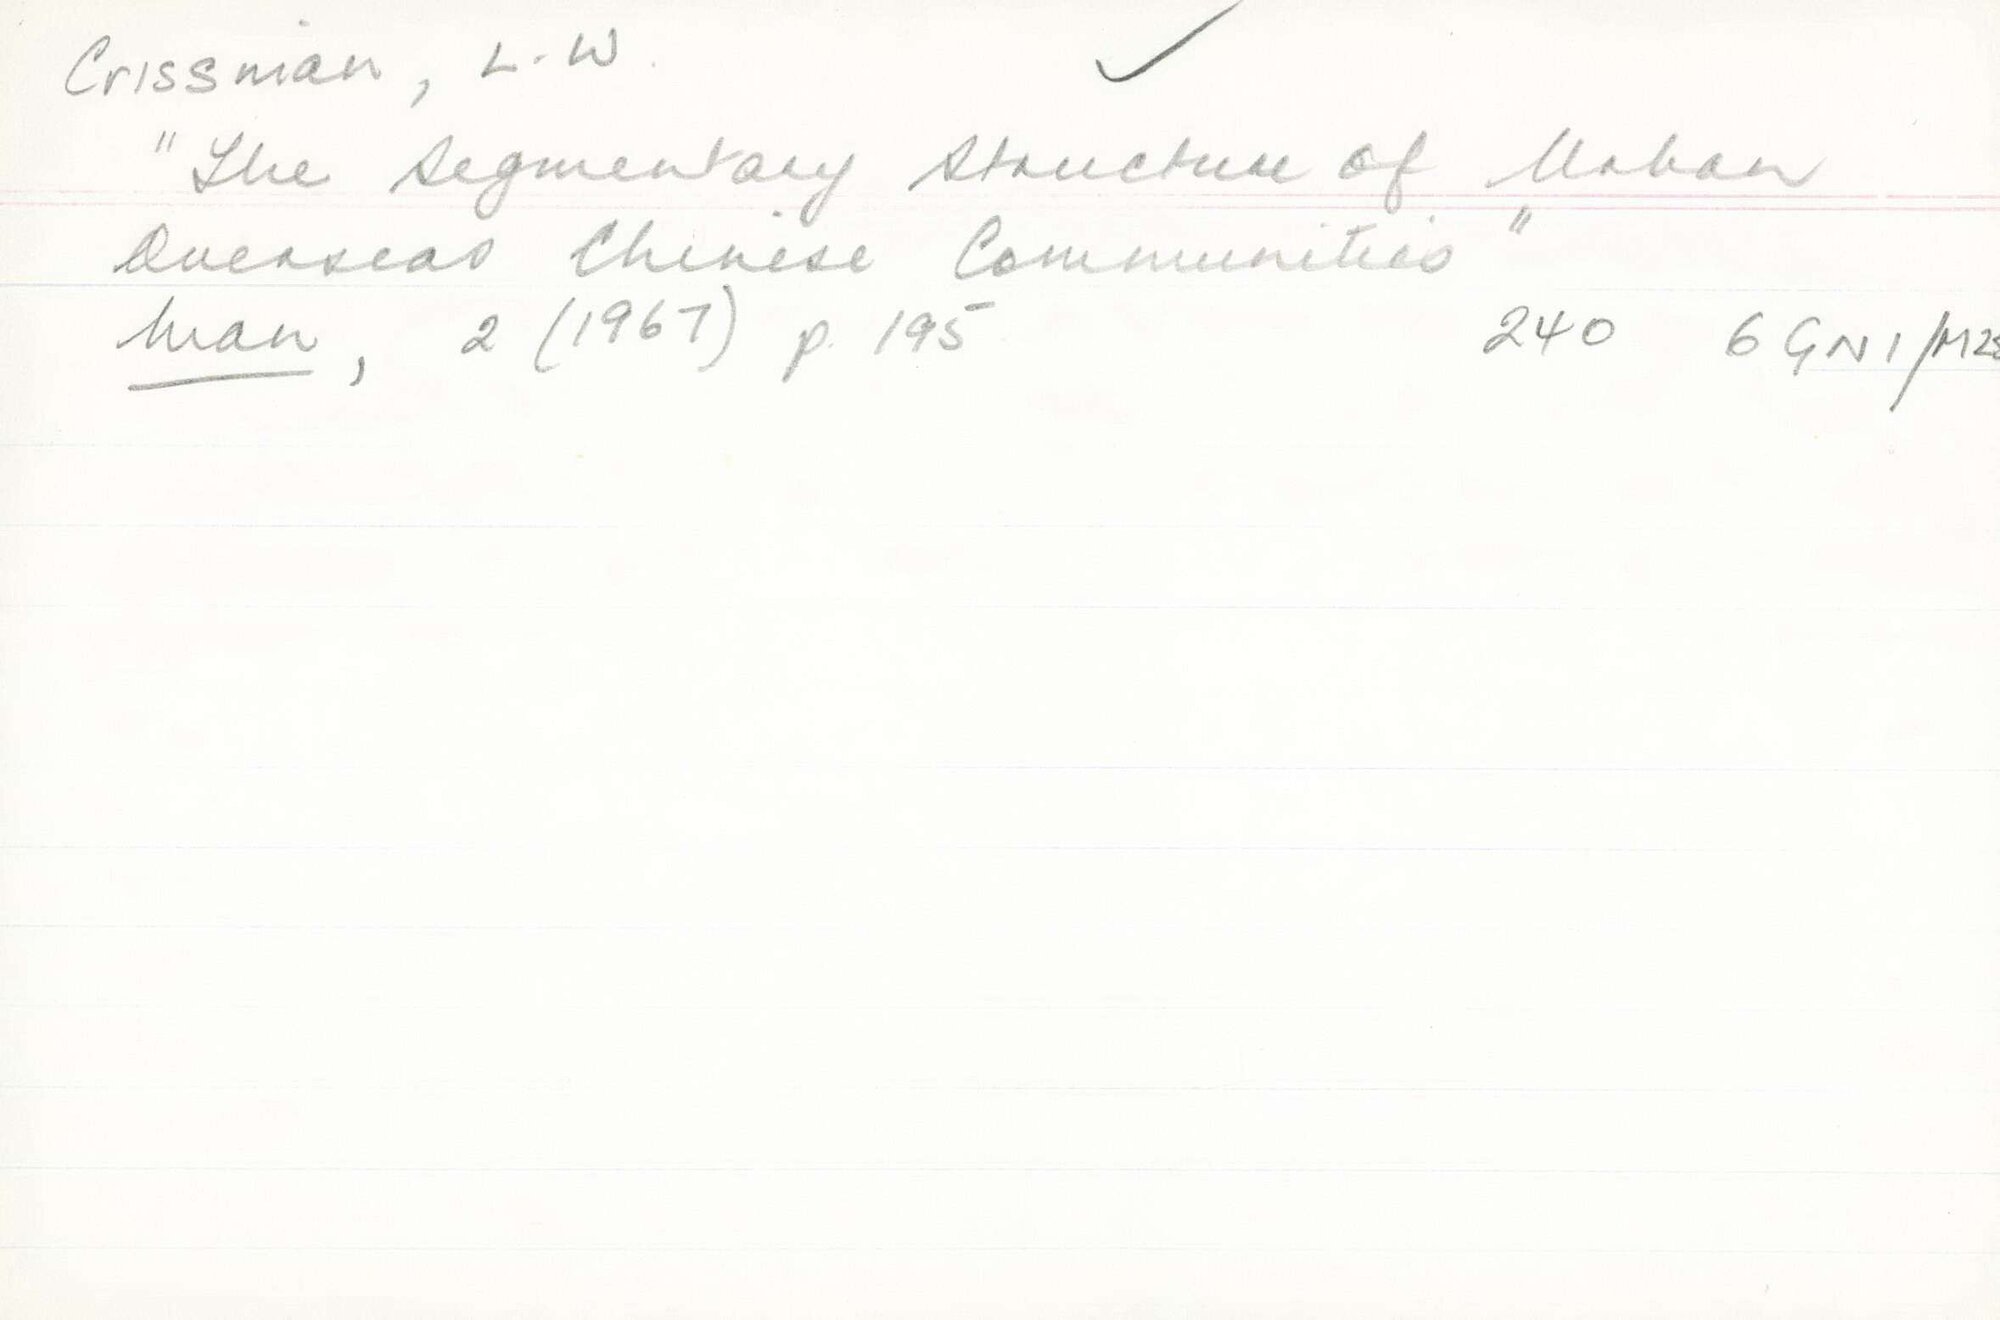 Crissman, L.W.
"The Segmentary Structure of Urban
Overseas Chinese Communities"
Man, 2 (1967) p. 195 240 6 GN1/M28